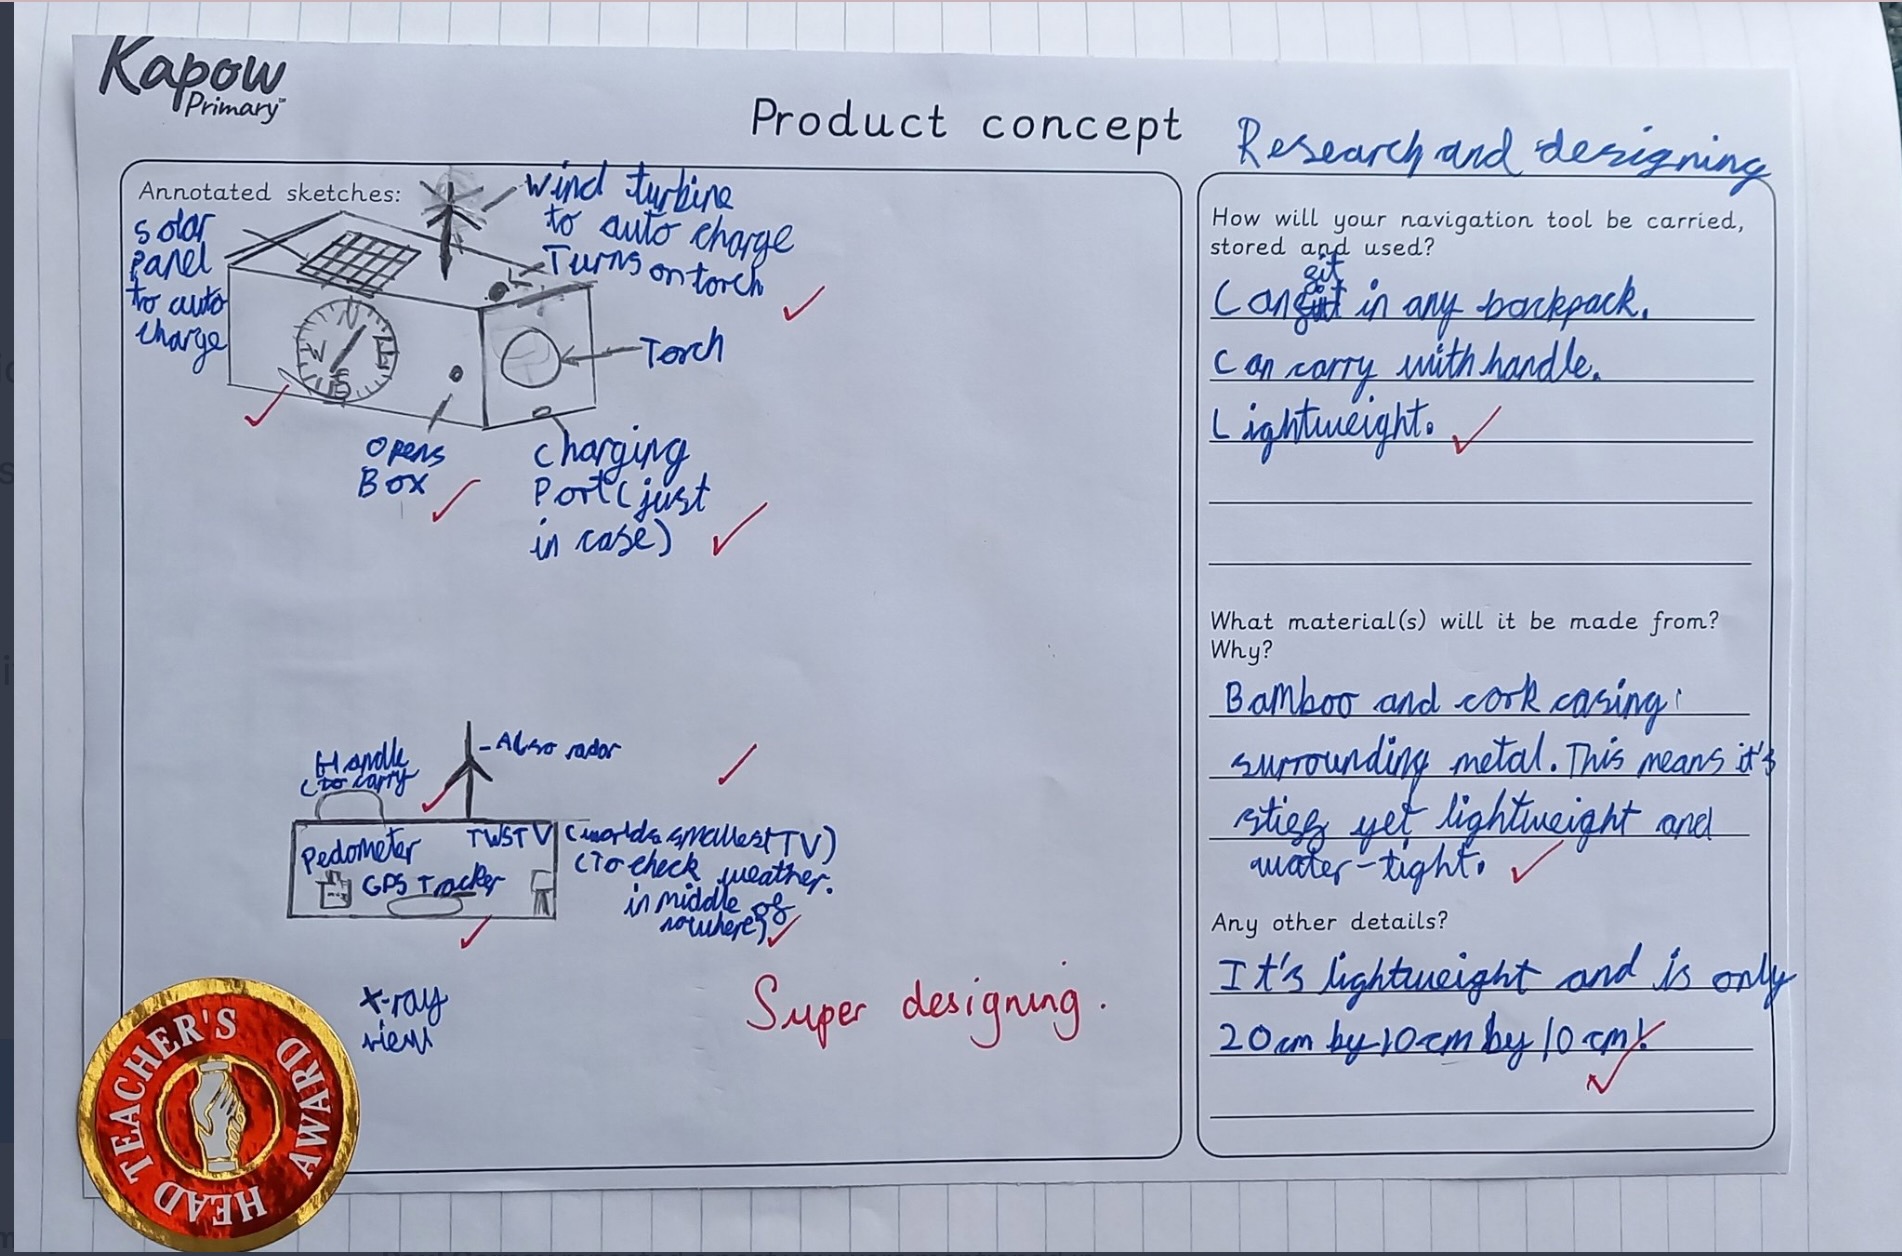 Kapow
Primary
Product concept
Research and designing
Annotated sketches:
solar
panel
to auto
charge
wind turbine
to auto charge
Turns on torch
N
W
E
S
Torch
opens
Box
charging
Port (just
in case)
Handle
(to carry
- Also radar
Pedometer
GPS Tracker
TWSTV
(worlds smallest TV)
(To check weather.
in middle of
nowhere)
x-ray
view
Super designing.
HEAD TEACHER'S AWARD
How will your navigation tool be carried,
stored and used?
fit
Can in any backpack.
Can carry with handle.
Lightweight.
What material(s) will it be made from?
Why?
Bamboo and cork casing
surrounding metal. This means it's
stiff yet lightweight and
water-tight.
Any other details?
It's lightweight and is only
20cm by 10cm by 10cm!